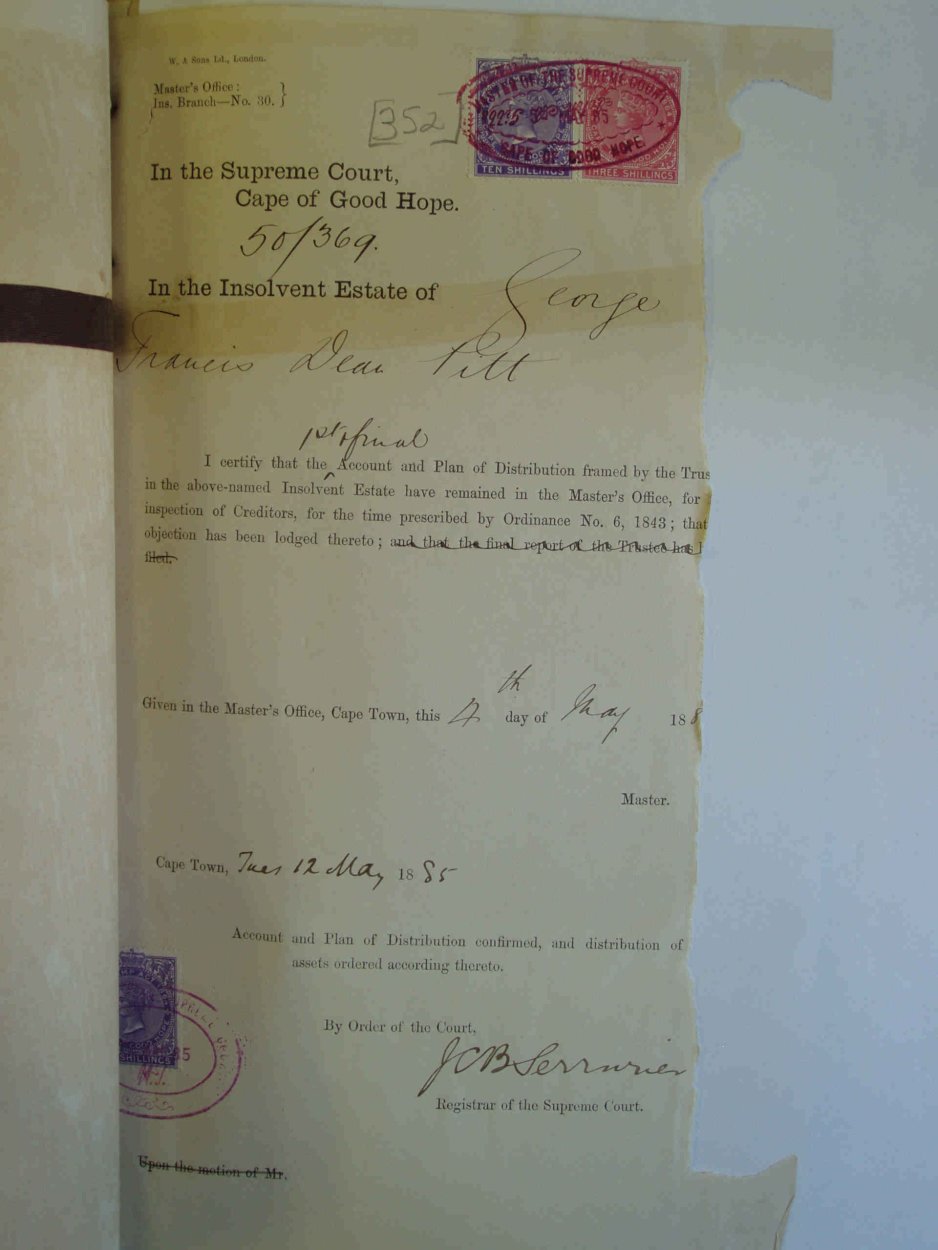 W. A Sons Ld., London.
Master's Office:
Ins. Branch—No. 30.
352
MASTER OF THE SUPREME COURT
MAY 85
CAPE OF GOOD HOPE
TEN SHILLINGS
THREE SHILLINGS
In the Supreme Court,
Cape of Good Hope.
50/369.
In the Insolvent Estate of George
Francis Dean Pitt
1st & final
I certify that the Account and Plan of Distribution framed by the Trus
in the above-named Insolvent Estate have remained in the Master's Office, for
inspection of Creditors, for the time prescribed by Ordinance No. 6, 1843; that
objection has been lodged thereto; and that the final report of the Trustee has
filed.
Given in the Master's Office, Cape Town, this 4th day of May 188
Master.
Cape Town, Tues 12 May 1885
Account and Plan of Distribution confirmed, and distribution of
assets ordered according thereto.
By Order of the Court,
JCB Serrurier
SHILLINGS
85
Registrar of the Supreme Court.
Upon the motion of Mr.